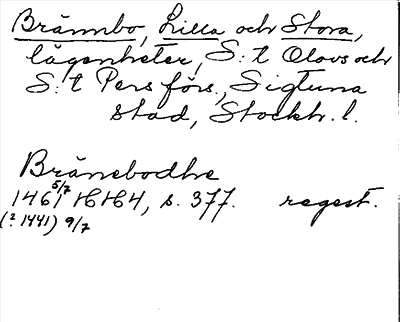 Brännbo, Lilla och Stora,
lägenheter, S:t Olovs och
S:t Pers förs., Sigtuna
stad, Stockh. l.
Bränebodhe
1461 5/7 HH 4, s. 377. regest.
(? 1441) 9/7